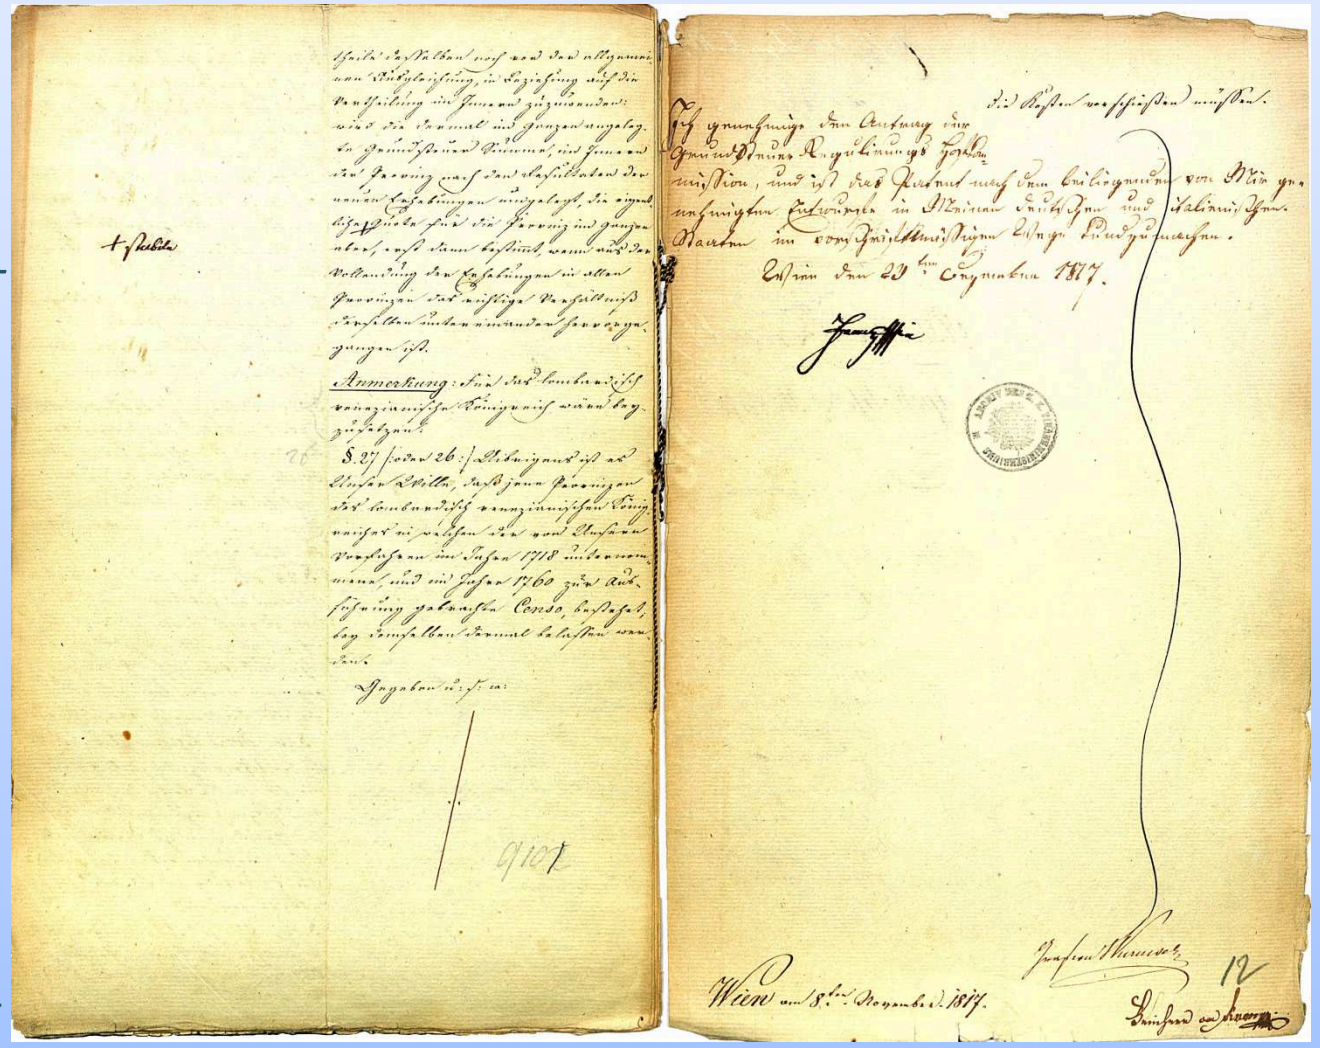 theile desselben noch vor der allgemei-
nen Ausgleichung, in Beziehung auf die
Vertheilung im Innern zuzuwenden:
wird die dermal im Ganzen angeleg-
te Grundsteuer Summe, im Innern
der Provinz nach den Resultaten der
neuen Erhebungen umgelegt, die eigent-
liche + Quote für die Provinz im Ganzen
aber, erst dann bestimmt, wenn aus der
Vollendung der Erhebungen in allen
Provinzen das richtige Verhältniß
derselben untereinander hervorge-
gangen ist.
+ stabile
Anmerkung: Für das lombardisch
venezianische Königreich wäre bey-
zusetzen:
§. 27 /: oder 26 :/ Uibrigens ist es
Unser Wille, daß jene Provinzen
des lombardisch venezianischen König-
reiches in welchen der von Unsern
Vorfahren im Jahre 1718 unternom-
mene, und im Jahre 1760 zur Aus-
führung gebrachte Censo, bestehet,
bey demselben dermal belassen wer-
den.
Gegeben u: s: w:
die Kosten vorschießen müssen.
Ich genehmige den Antrag der
Grundsteuer Regulirungs Hofkom-
mission, und ist das Patent nach dem beiliegenden von Mir ge-
nehmigten Entwurfe in Meinen deutschen und italienischen
Staaten im vorschriftmässigen Wege kundzumachen.
Wien den 23ten Dezember 1817.
Franz
ARCHIV DES K. K. FINANZMINISTERIUMS
Wien am 8ten November 1817.
12